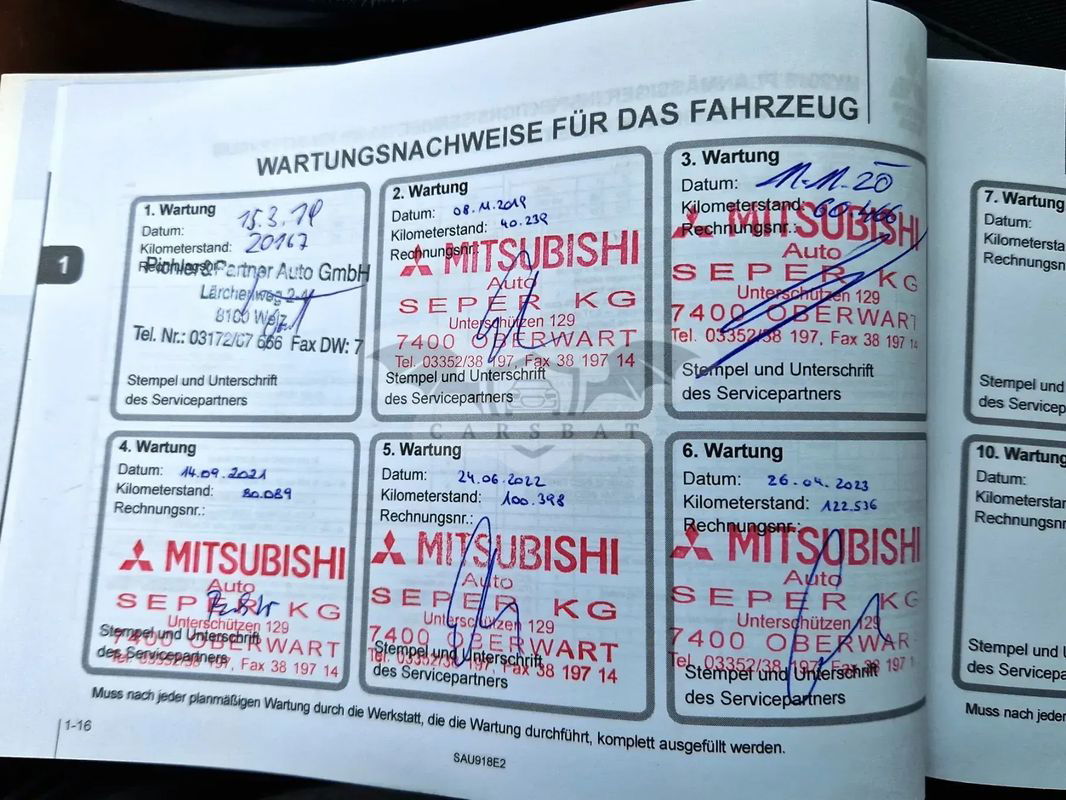 WARTUNGSNACHWEISE FÜR DAS FAHRZEUG
1
1. Wartung
Datum: 15.3.19
Kilometerstand: 20167
Pichler & Partner Auto GmbH
Lärchenweg 2-4
8160 Weiz
Tel. Nr.: 03172/67 666 Fax DW: 7
Stempel und Unterschrift
des Servicepartners
2. Wartung
Datum: 08.11.2019
Kilometerstand: 40.239
Rechnungsnr.:
MITSUBISHI
Auto
SEPER KG
Unterschützen 129
7400 OBERWART
Tel. 03352/38 197, Fax 38 197 14
Stempel und Unterschrift
des Servicepartners
3. Wartung
Datum: 11.11.20
Kilometerstand: 60.466
Rechnungsnr.:
MITSUBISHI
Auto
SEPER KG
Unterschützen 129
7400 OBERWART
Tel. 03352/38 197, Fax 38 197 14
Stempel und Unterschrift
des Servicepartners
4. Wartung
Datum: 14.09.2021
Kilometerstand: 80.089
Rechnungsnr.:
MITSUBISHI
Auto
SEPER KG
Unterschützen 129
7400 OBERWART
Stempel und Unterschrift
Tel. 03352/38 197, Fax 38 197 14
des Servicepartners
5. Wartung
Datum: 24.06.2022
Kilometerstand: 100.398
Rechnungsnr.:
MITSUBISHI
Auto
SEPER KG
Unterschützen 129
7400 OBERWART
Stempel und Unterschrift
Tel. 03352/38 197, Fax 38 197 14
des Servicepartners
6. Wartung
Datum: 26.04.2023
Kilometerstand: 122.536
Rechnungsnr.:
MITSUBISHI
Auto
SEPER KG
Unterschützen 129
7400 OBERWAR
Tel. 03352/38 197, Fax 38 197 1
Stempel und Unterschrift
des Servicepartners
CARSBAT
Muss nach jeder planmäßigen Wartung durch die Werkstatt, die die Wartung durchführt, komplett ausgefüllt werden.
1-16
SAU918E2
7. Wartung
Datum:
Kilometerst
Rechnungsn
Stempel und
des Servicep
10. Wartung
Datum:
Kilometersta
Rechnungsn
Stempel und U
des Servicepa
Muss nach jeder